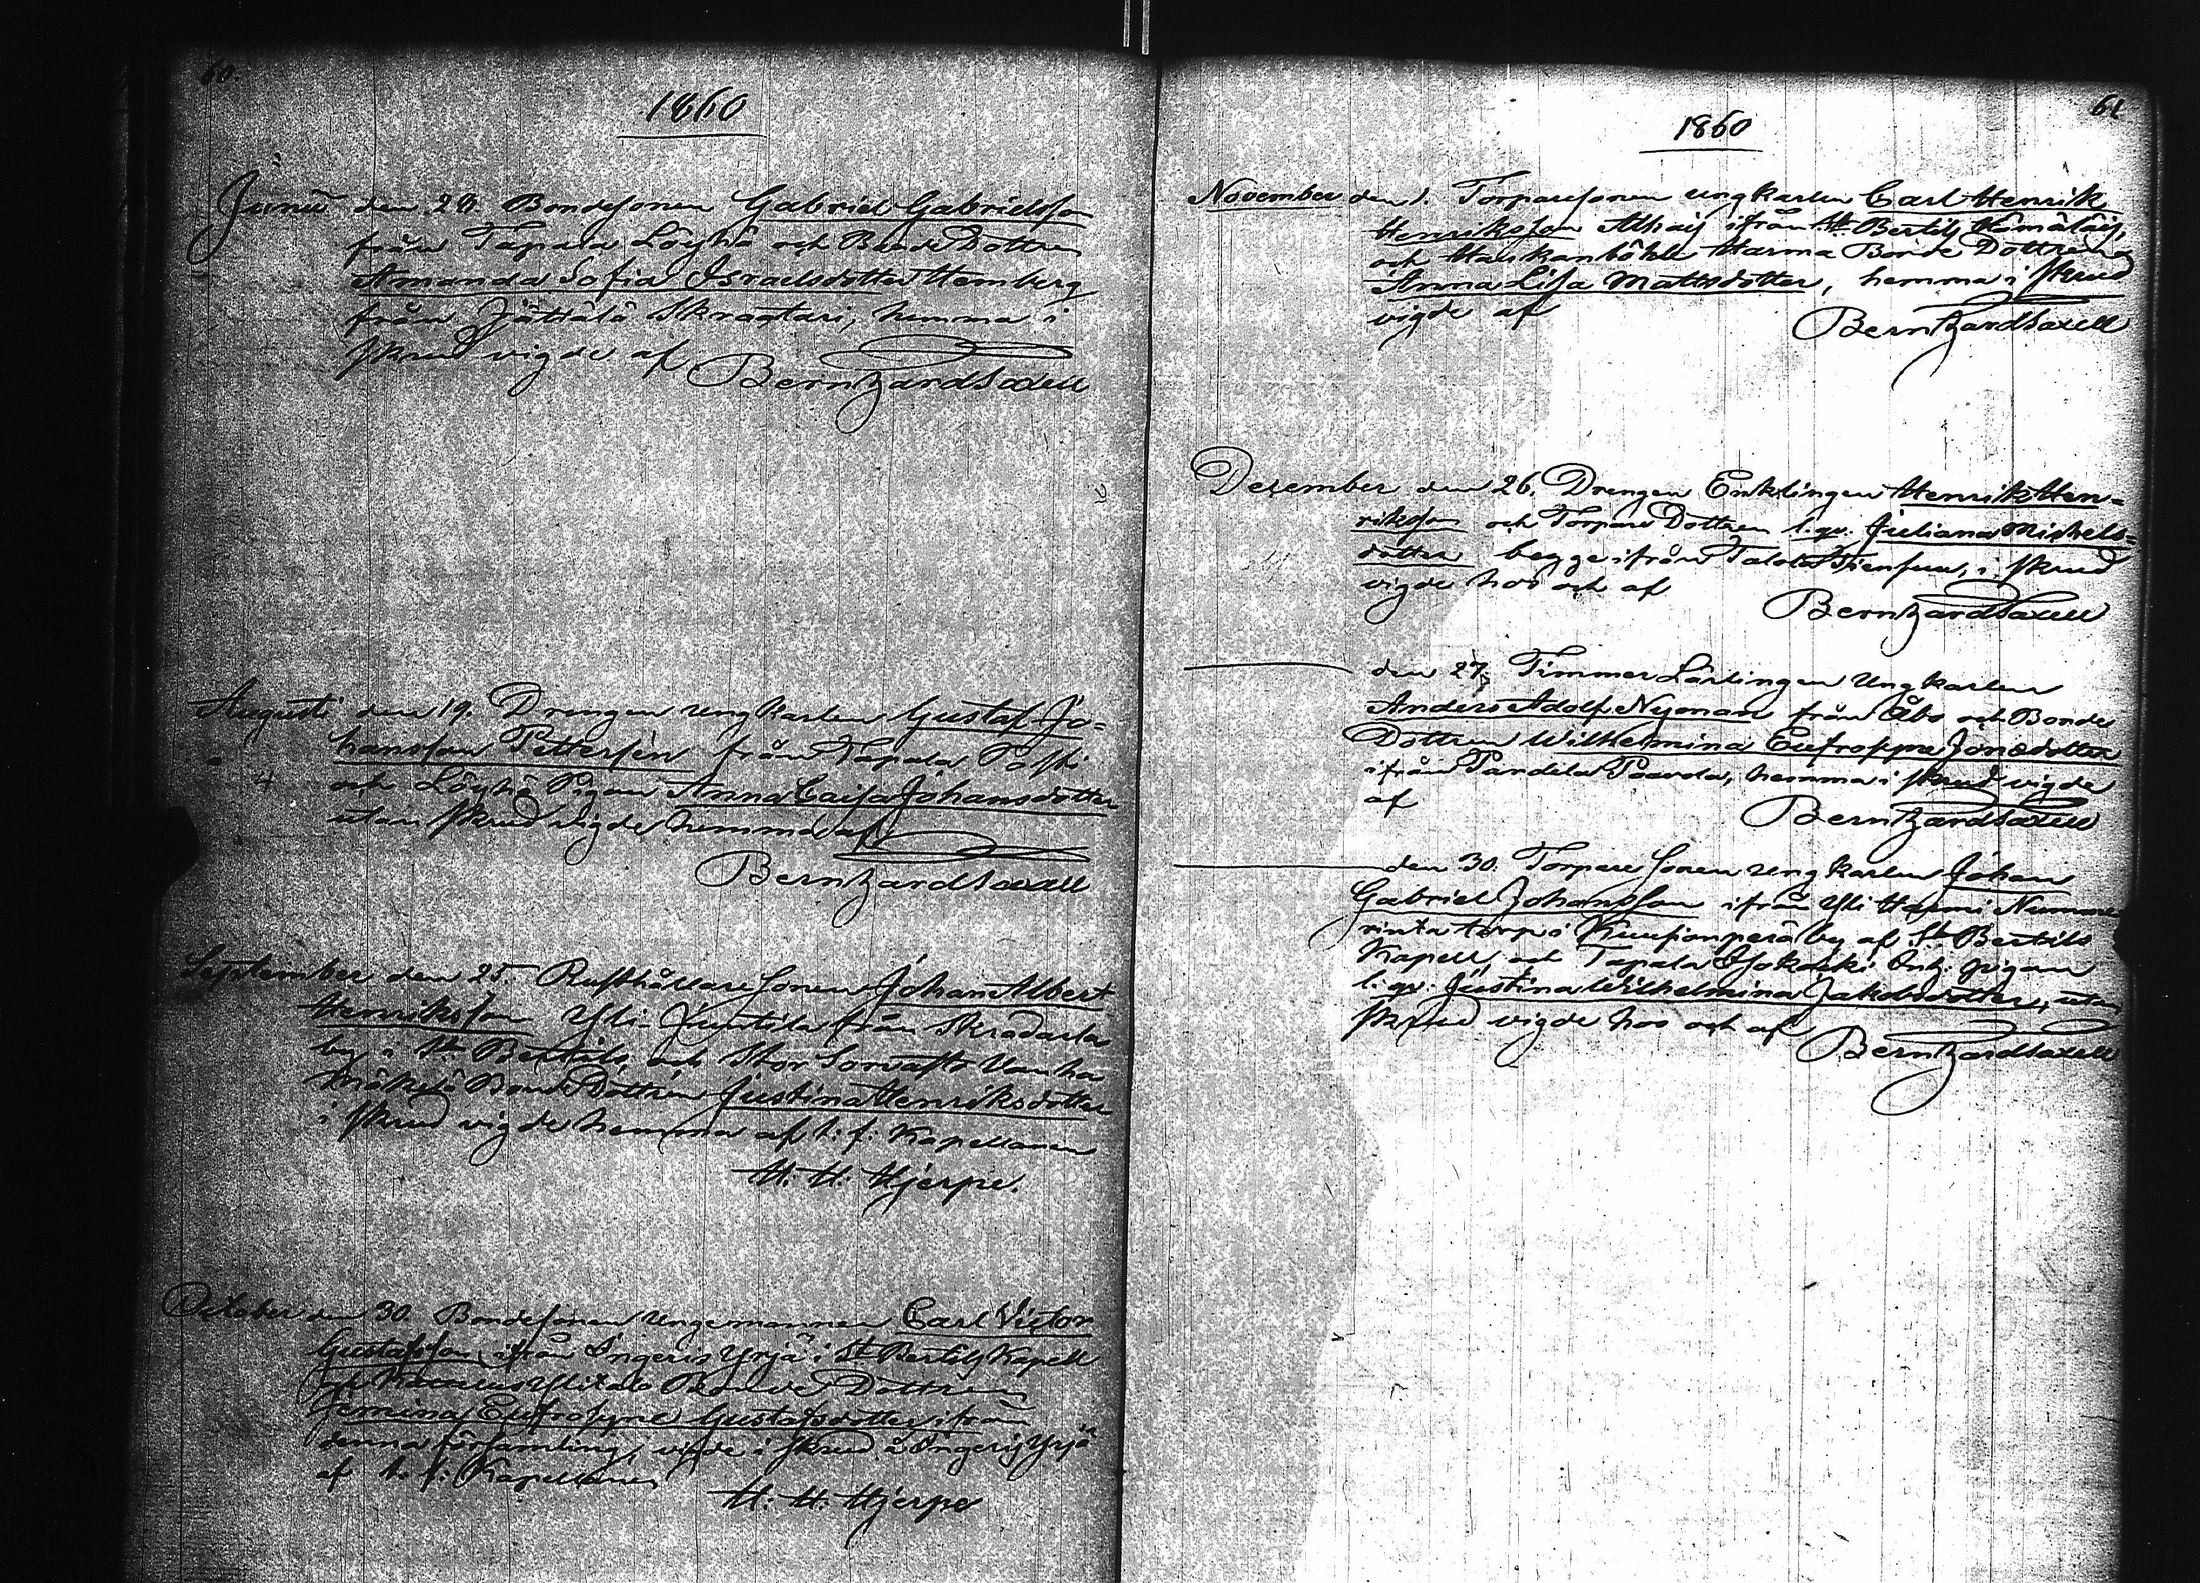 60.
1860
Junii den 24. Bondesonen Gabriel Gabrielsson
från Tapala Löyhö och Bonde Dottren
Amanda Sofia Israelsdotter Hemberg
från Jättälä Skraatari, hemma i
skrud vigde af
Berntz ard Saxell
Augusti den 19. Drengen ungkarlen Gustaf Jo-
hansson Pettersén från Tapala Påssi
och Löyhö Pigan Anna Caisa Johansdotter
utan skrud vigde hemma af
Berntz ard Saxell
September den 25. Rusthållare Sonen Johan Albert
Henriksson Yli-Juntila från Skradarla
by i St. Bertils, och Stor Sorvasto Vanha
Mäkilä Bonde Dottren Justina Henriksdotter
i skrud vigde hemma af t: f: Kapellanen
H. H. Hjerpe.
October den 30. Bondesonen Ungemannen Carl Victor
Gustafsson ifrån Ingeris Yrjä i St Bertils Kapell
och Ylitalo Bonde Dottren
Jemina Eufrosyne Gustafsdotter ifrån
denna församling, vigde i skrud å Ingeris Yrjä
af t. f: Kapellanen
H. H. Hjerpe
61
1860
November den 1. Torparesonen ungkarlen Carl Henrik
Henriksson ifrån St Bertils
och Haukanböhle Harma Bonde Dottren
Anna Lisa Mattsdotter, hemma i skrud
vigde af
Berntz ard Saxell
December den 26. Drengen Enklingen Henrik Hen-
riksson och Torpare Dottren l. qv. Juliana Michels-
dotter begge ifrån Talola, i skrud
vigde hos och af
Berntz ard Saxell
den 27. Timmer Lärlingen Ungkarlen
Anders Adolf Nyman från Åbo och Bonde
Dottren Wilhelmina Eufrosyne Jonædotter
ifrån Pandela Paavola, hemma i skrud vigde
af
Berntz ard Saxell
den 30. Torpare Sonen ungkarlen Johan
Gabriel Johansson ifrån Yli Harmi Numme
rinta torp i Kuusionperä by af St. Bertils
Kapell, och Tapala Isokoski Inh: pigan
l: qv: Justina Wilhelmina Jakobsdotter, utan
skrud vigde hos och af
Berntz ard Saxell